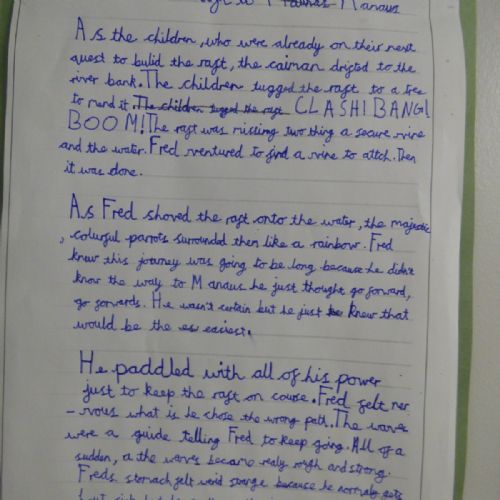 to Manaus
As the children, who were already on their next
quest to bulid the raft, the caiman drifted to the
river bank. The children tugged the raft to a tree
to mend it. The children tugged the raft CLASH! BANG!
BOOM! The raft was missing two thing a secure vine
and the water. Fred ventured to find a vine to attch. Then
it was done.
As Fred shoved the raft onto the water, the majestic
, colurful parrots surrounded them like a rainbow. Fred
knew this journey was going to be long because he didn't
know the way to Manaus he just thought go forward,
go forwards. He wasn't certain but he just knew that
would be the easiest.
He paddled with all of his power
just to keep the raft on course. Fred felt ner
- vous what is he chose the wrong path. The waves
were a guide telling Fred to keep going. All of a
sudden, a the waves became realy rough and strong.
Freds stomach felt weird strange because he normaly gets